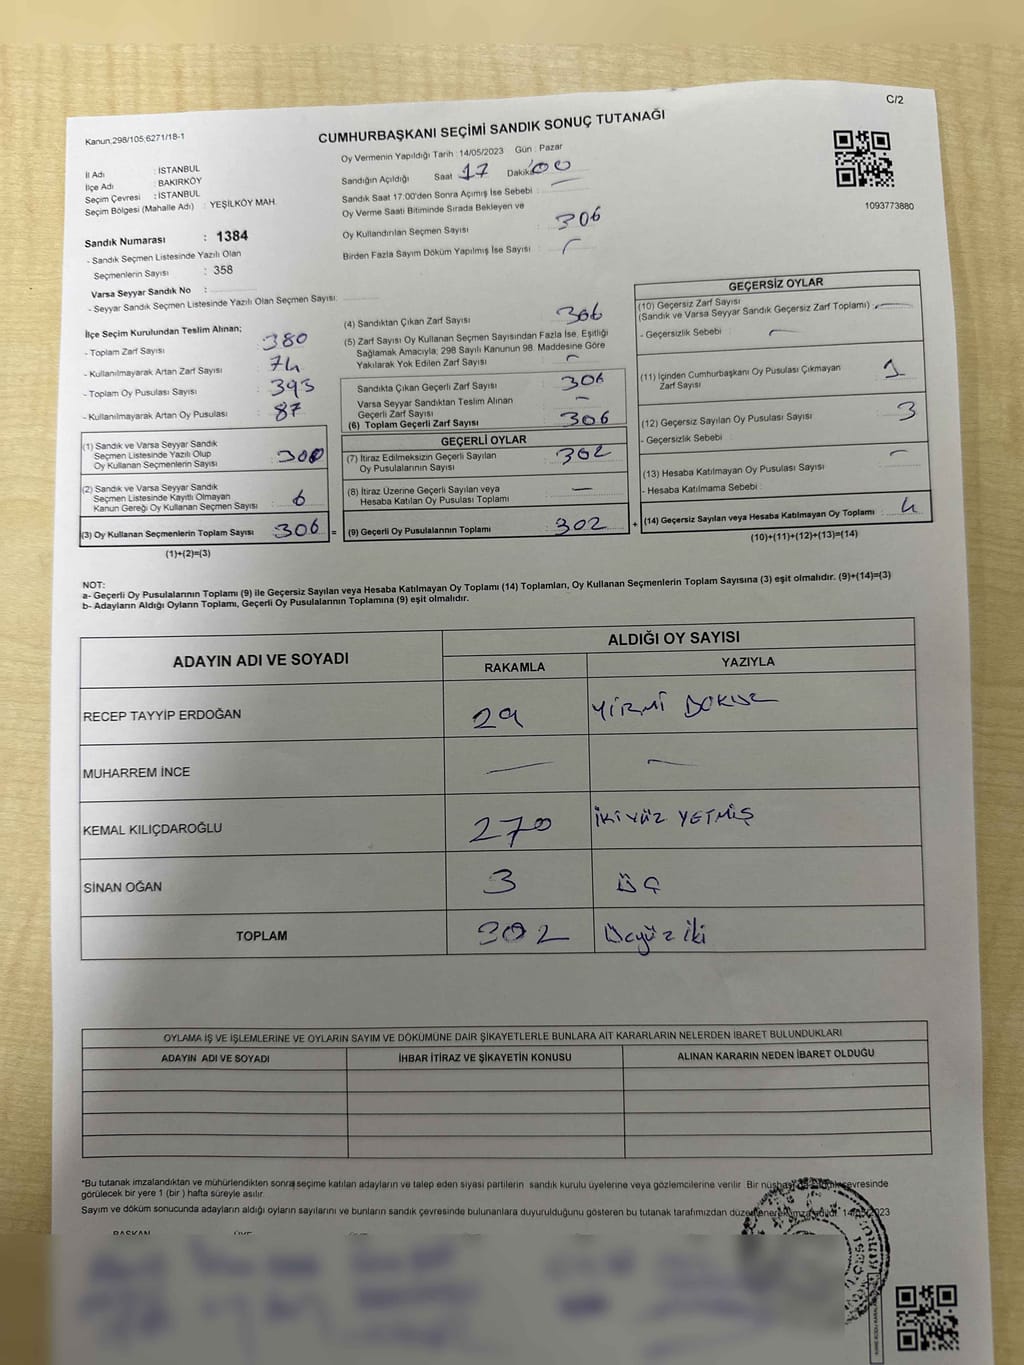 C/2
Kanun:298/105;6271/18-1
CUMHURBAŞKANI SEÇİMİ SANDIK SONUÇ TUTANAĞI
İl Adı : İSTANBUL
İlçe Adı : BAKIRKÖY
Seçim Çevresi : İSTANBUL
Seçim Bölgesi (Mahalle Adı) : YEŞİLKÖY MAH.
Sandık Numarası : 1384
- Sandık Seçmen Listesinde Yazılı Olan
Seçmenlerin Sayısı : 358
Varsa Seyyar Sandık No :
- Seyyar Sandık Seçmen Listesinde Yazılı Olan Seçmen Sayısı:
Oy Vermenin Yapıldığı Tarih : 14/05/2023 Gün : Pazar
Sandığın Açıldığı Saat 17 Dakika: 00
Sandık Saat 17:00'den Sonra Açımış İse Sebebi :
Oy Verme Saati Bitiminde Sırada Bekleyen ve
Oy Kullandırılan Seçmen Sayısı : 306
Birden Fazla Sayım Döküm Yapılmış İse Sayısı :
1093773880
İlçe Seçim Kurulundan Teslim Alınan;
- Toplam Zarf Sayısı : 380
- Kullanılmayarak Artan Zarf Sayısı : 74
- Toplam Oy Pusulası Sayısı : 393
- Kullanılmayarak Artan Oy Pusulası : 87
(1) Sandık ve Varsa Seyyar Sandık
Seçmen Listesinde Yazılı Olup
Oy Kullanan Seçmenlerin Sayısı : 300
(2) Sandık ve Varsa Seyyar Sandık
Seçmen Listesinde Kayıtlı Olmayan
Kanun Gereği Oy Kullanan Seçmen Sayısı : 6
(3) Oy Kullanan Seçmenlerin Toplam Sayısı : 306 =
(1)+(2)=(3)
(4) Sandıktan Çıkan Zarf Sayısı : 306
(5) Zarf Sayısı Oy Kullanan Seçmen Sayısından Fazla İse, Eşitliği
Sağlamak Amacıyla; 298 Sayılı Kanunun 98. Maddesine Göre
Yakılarak Yok Edilen Zarf Sayısı :
Sandıkta Çıkan Geçerli Zarf Sayısı : 306
Varsa Seyyar Sandıktan Teslim Alınan
Geçerli Zarf Sayısı :
(6) Toplam Geçerli Zarf Sayısı : 306
GEÇERLİ OYLAR
(7) İtiraz Edilmeksizin Geçerli Sayılan
Oy Pusulalarının Sayısı : 302
(8) İtiraz Üzerine Geçerli Sayılan veya
Hesaba Katılan Oy Pusulası Toplamı : —
(9) Geçerli Oy Pusulalarının Toplamı : 302 +
GEÇERSİZ OYLAR
(10) Geçersiz Zarf Sayısı
(Sandık ve Varsa Seyyar Sandık Geçersiz Zarf Toplamı) :
- Geçersizlik Sebebi :
(11) İçinden Cumhurbaşkanı Oy Pusulası Çıkmayan
Zarf Sayısı : 1
(12) Geçersiz Sayılan Oy Pusulası Sayısı : 3
- Geçersizlik Sebebi :
(13) Hesaba Katılmayan Oy Pusulası Sayısı :
- Hesaba Katılmama Sebebi :
(14) Geçersiz Sayılan veya Hesaba Katılmayan Oy Toplamı : 4
(10)+(11)+(12)+(13)=(14)
NOT:
a- Geçerli Oy Pusulalarının Toplamı (9) ile Geçersiz Sayılan veya Hesaba Katılmayan Oy Toplamı (14) Toplamları, Oy Kullanan Seçmenlerin Toplam Sayısına (3) eşit olmalıdır. (9)+(14)=(3)
b- Adayların Aldığı Oyların Toplamı, Geçerli Oy Pusulalarının Toplamına (9) eşit olmalıdır.
ADAYIN ADI VE SOYADI ALDIĞI OY SAYISI
RAKAMLA YAZIYLA
RECEP TAYYİP ERDOĞAN 29 YİRMİ DOKUZ
MUHARREM İNCE — —
KEMAL KILIÇDAROĞLU 270 İKİYÜZ YETMİŞ
SİNAN OĞAN 3 ÜÇ
TOPLAM 302 Üçyüz iki
OYLAMA İŞ VE İŞLEMLERİNE VE OYLARIN SAYIM VE DÖKÜMÜNE DAİR ŞİKAYETLERLE BUNLARA AİT KARARLARIN NELERDEN İBARET BULUNDUKLARI
ADAYIN ADI VE SOYADI İHBAR İTİRAZ VE ŞİKAYETİN KONUSU ALINAN KARARIN NEDEN İBARET OLDUĞU
*Bu tutanak imzalandıktan ve mühürlendikten sonra seçime katılan adayların ve talep eden siyasi partilerin sandık kurulu üyelerine veya gözlemcilerine verilir. Bir nüshası çevresinde
görülecek bir yere 1 (bir ) hafta süreyle asılır.
Sayım ve döküm sonucunda adayların aldığı oyların sayılarını ve bunların sandık çevresinde bulunanlara duyurulduğunu gösteren bu tutanak tarafımızdan 14/05/2023
BAŞKAN ÜYE